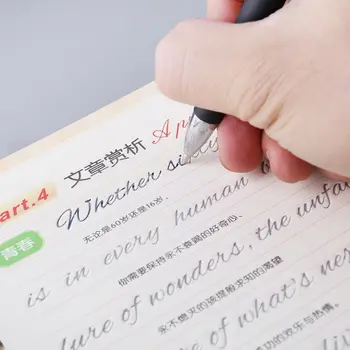 art.4 文章赏析 Ap
Whether sixty
无论是60岁还是16岁、
青春
is in every human
你需要保持永不衰竭的好奇心、
ure of wonders, the unfa
永不熄灭的孩提般求知的渴望
ure of what's nex
功的欢乐与热情。